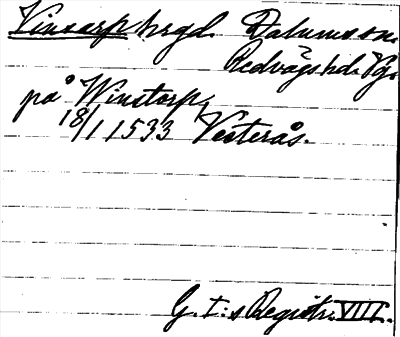 Vinsarp hrgd. Dalums sn.
Redvägs hd. Vg.
på Winstorp,
18/1 1533 Vesterås.
G. I:s Registr. VIII.